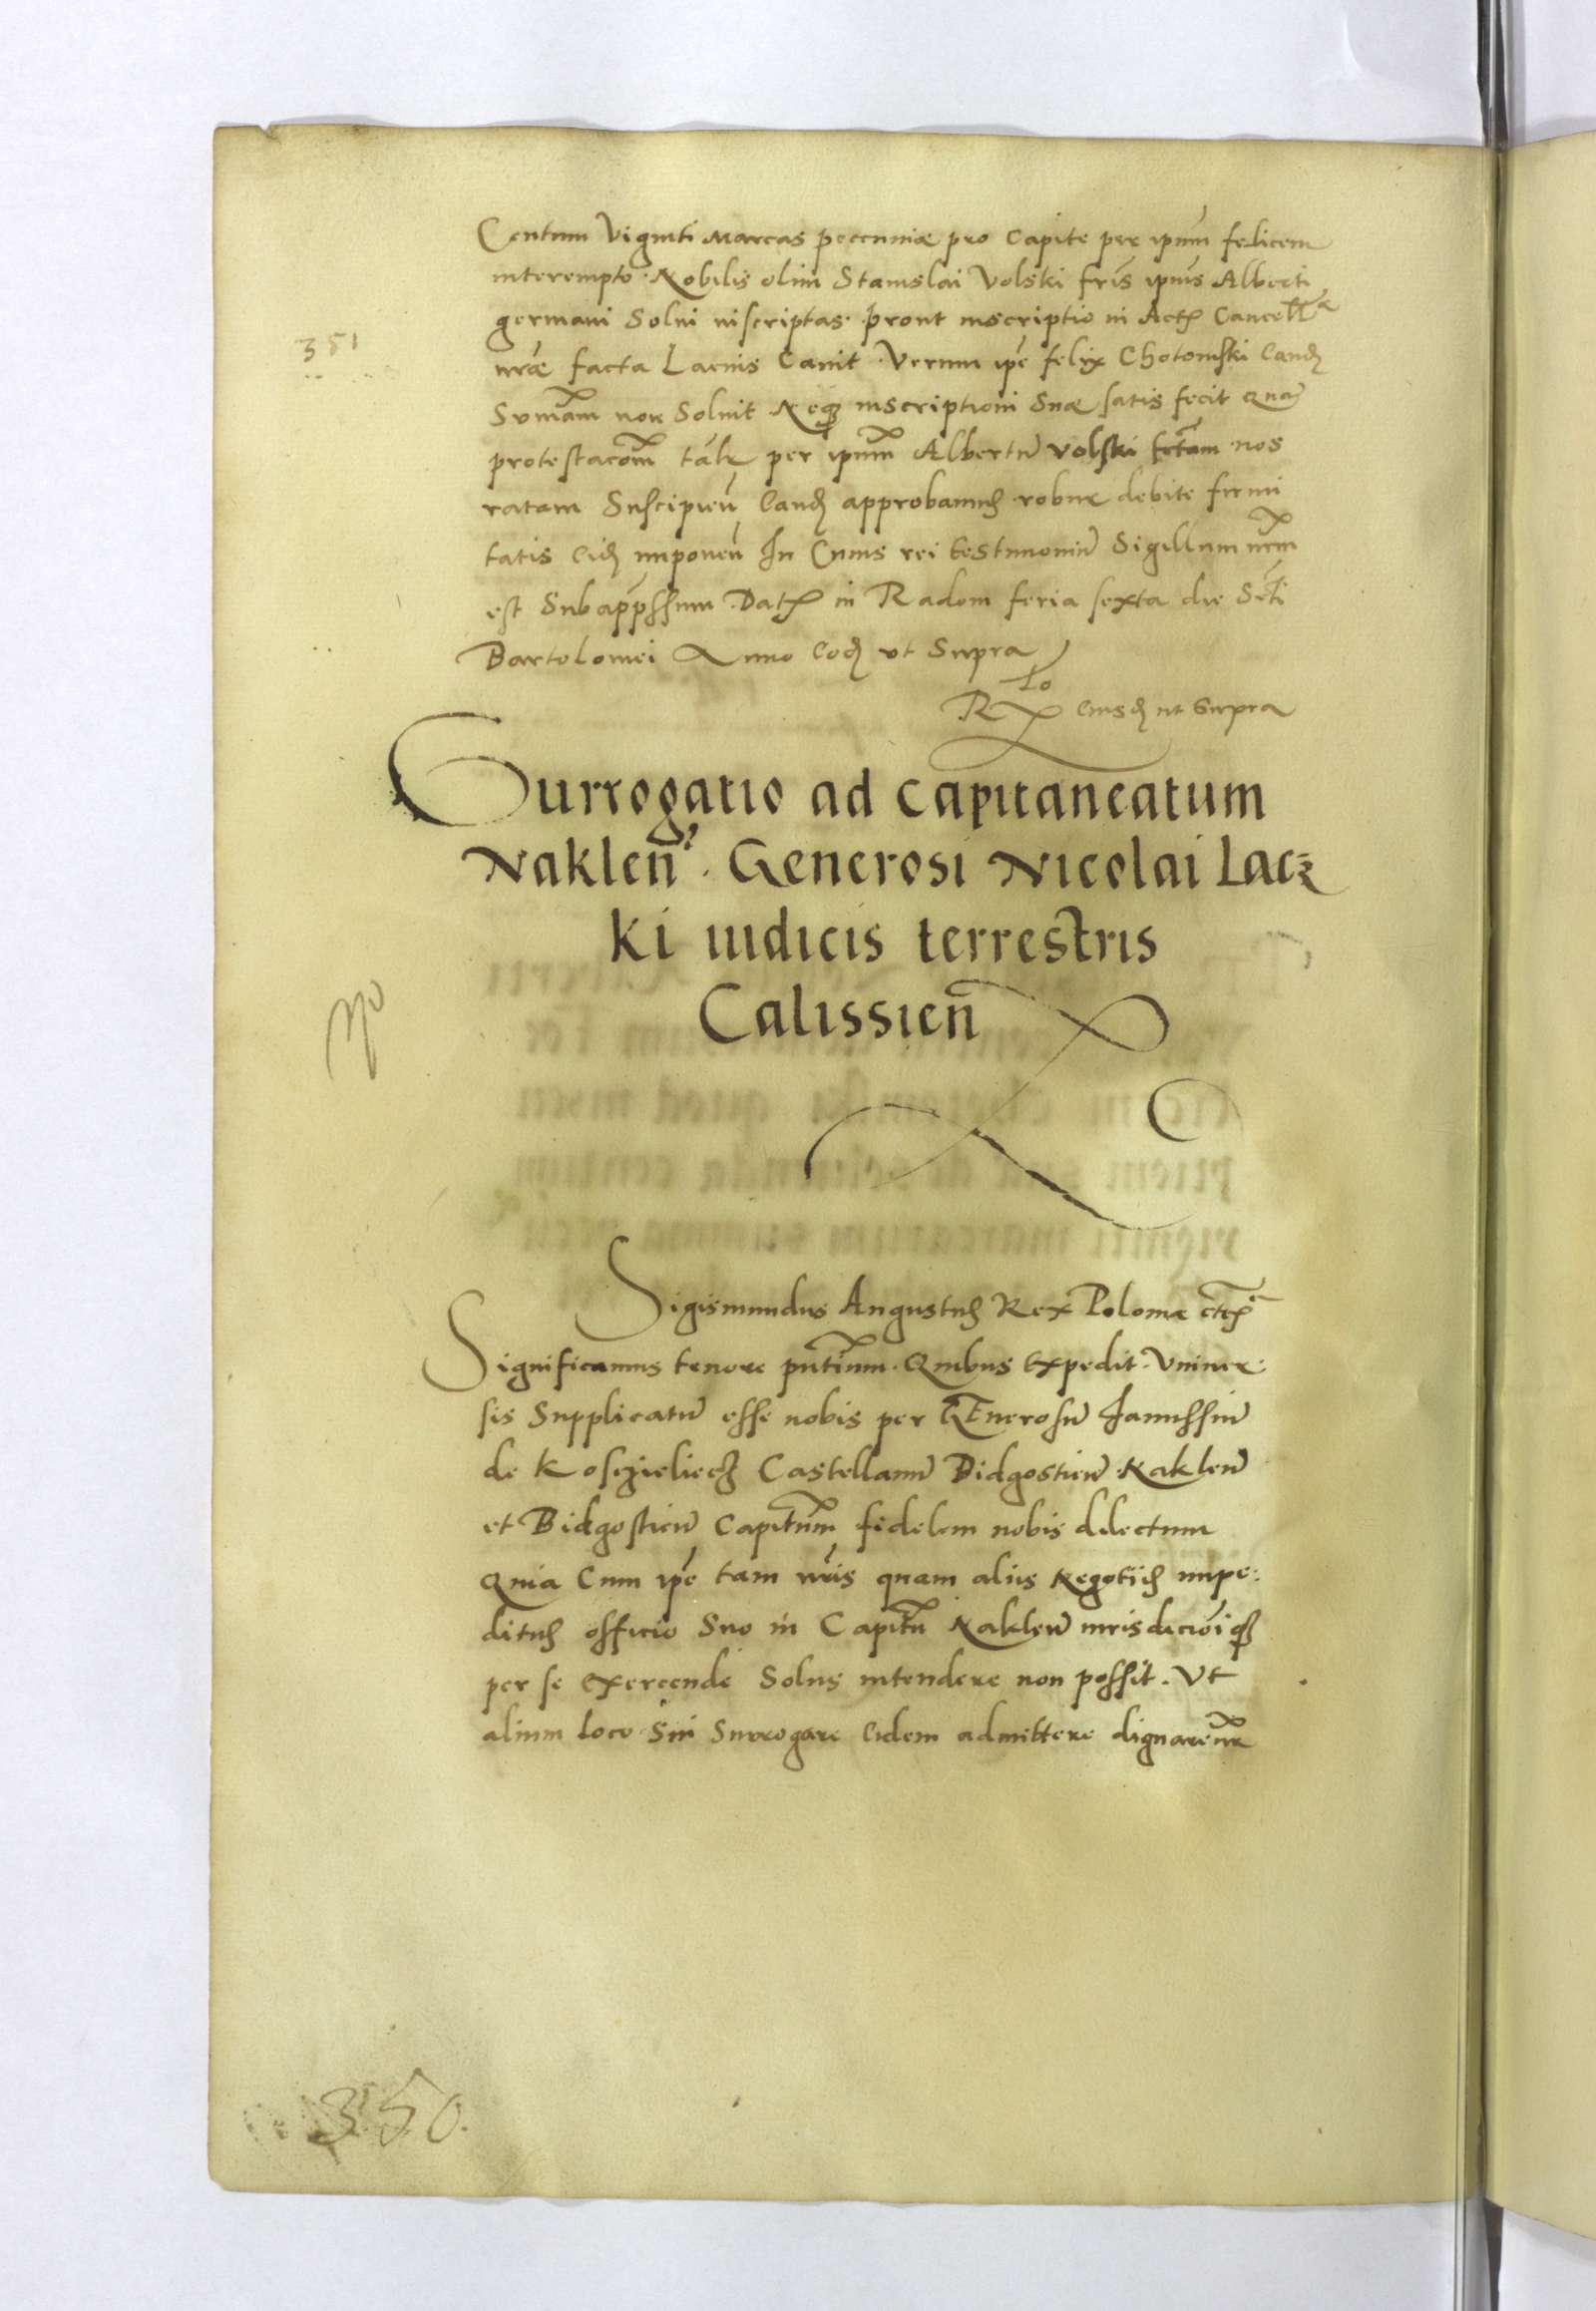 Centum Viginti Marcas pecuniæ pro capite per ipum felicem
interempto Nobilis olim Stanislai Volski fris ipius Alberti
germani Solui inscriptas. prout inscriptio in Actis Cancell
351
nræ facta Lacius Canit. Verum ipe felix Chotomski Eand
Sumam non Soluit Neqz inscriptioni Suæ satis fecit Quam
protestacom talr per ipum Albertu volski fctam nos
ratam Suscipien Eand approbamus robur debite firmi
tatis Eid imponen In Cuius rei testimoniu Sigillum nrm
est Subappssum Dat in Radom feria sexta die Scti
Bartolomei Anno Eod vt Supra
Rlo Eiusd ut supra
Surrogatio ad capitaneatum
Naklen. Generosi Nicolai Lacz
ki iudicis terrestris
Calissien
Sigismundus Augustus Rex Poloniæ etc
Significamus tenore pntium. Quibus Expedit. Vniuer:
sis Supplicatu esse nobis per GEnerosu Janussiu
de Kosczieliecz Castellanu Bidgostien Naklen
et Bidgostien Capitnm fidelem nobis dilectum
Quia Cum ipe tam nris quam aliis Negotiis impe:
ditus officio Suo in Capitu Naklen iurisdicioniqz
per se Exercende Solus intendere non possit. Vt
alium loco Sui Surrogare Eidem admittere dignaremr
350.